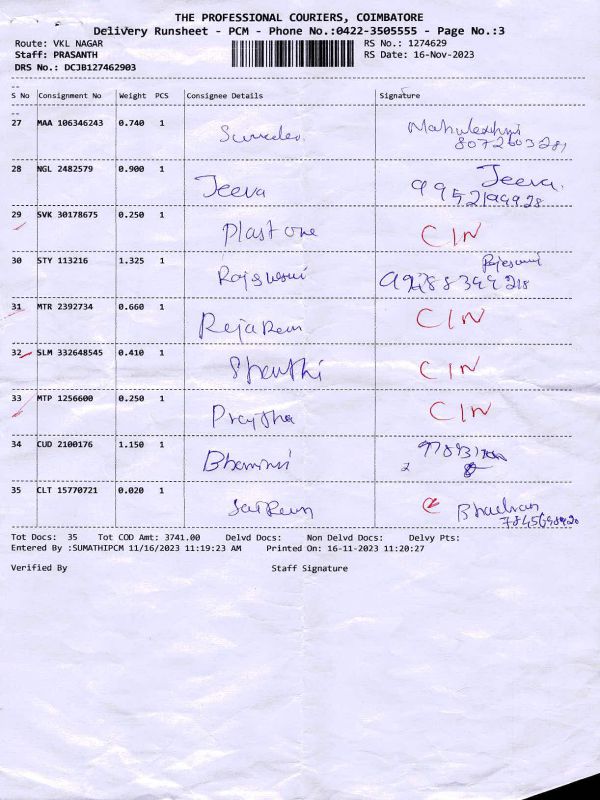 THE PROFESSIONAL COURIERS, COIMBATORE
Delivery Runsheet - PCM - Phone No.:0422-3505555 - Page No.:3
Route: VKL NAGAR RS No.: 1274629
Staff: PRASANTH RS Date: 16-Nov-2023
DRS No.: DCJB127462903
S No Consignment No Weight PCS Consignee Details Signature
27 MAA 106346243 0.740 1
28 NGL 2482579 0.900 1 Jeeva Jeeva.
29 SVK 30178675 0.250 1 Plast one CIN
30 STY 113216 1.325 1
31 MTR 2392734 0.660 1 CIN
32 SLM 332648545 0.410 1 Shanthi CIN
33 MTP 1256600 0.250 1 CIN
34 CUD 2100176 1.150 1
35 CLT 15770721 0.020 1
Tot Docs: 35 Tot COD Amt: 3741.00 Delvd Docs: Non Delvd Docs: Delvy Pts:
Entered By :SUMATHIPCM 11/16/2023 11:19:23 AM Printed On: 16-11-2023 11:20:27
Verified By Staff Signature